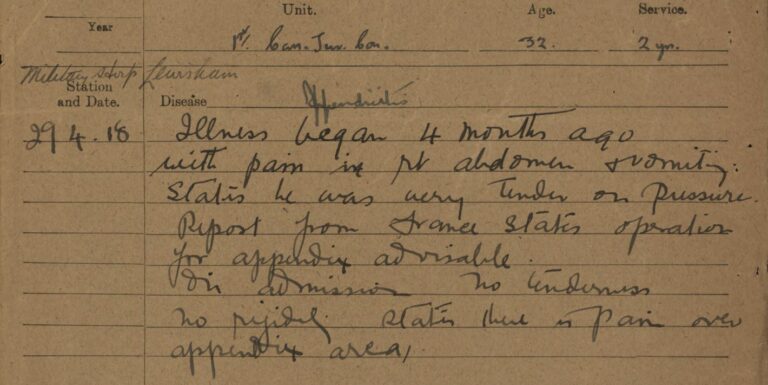 Unit. Age. Service.
Year
1st Can. Tun. Con. 32. 2 yrs.
Military Hosp Lewisham
Station
and Date.
Disease Appendicitis
29.4.18 Illness began 4 months ago
with pain in rt abdomen & vomiting.
States he was very tender on pressure.
Report from France states operation
for appendix advisable.
On admission no tenderness
no rigidity states there is pain over
appendix area,